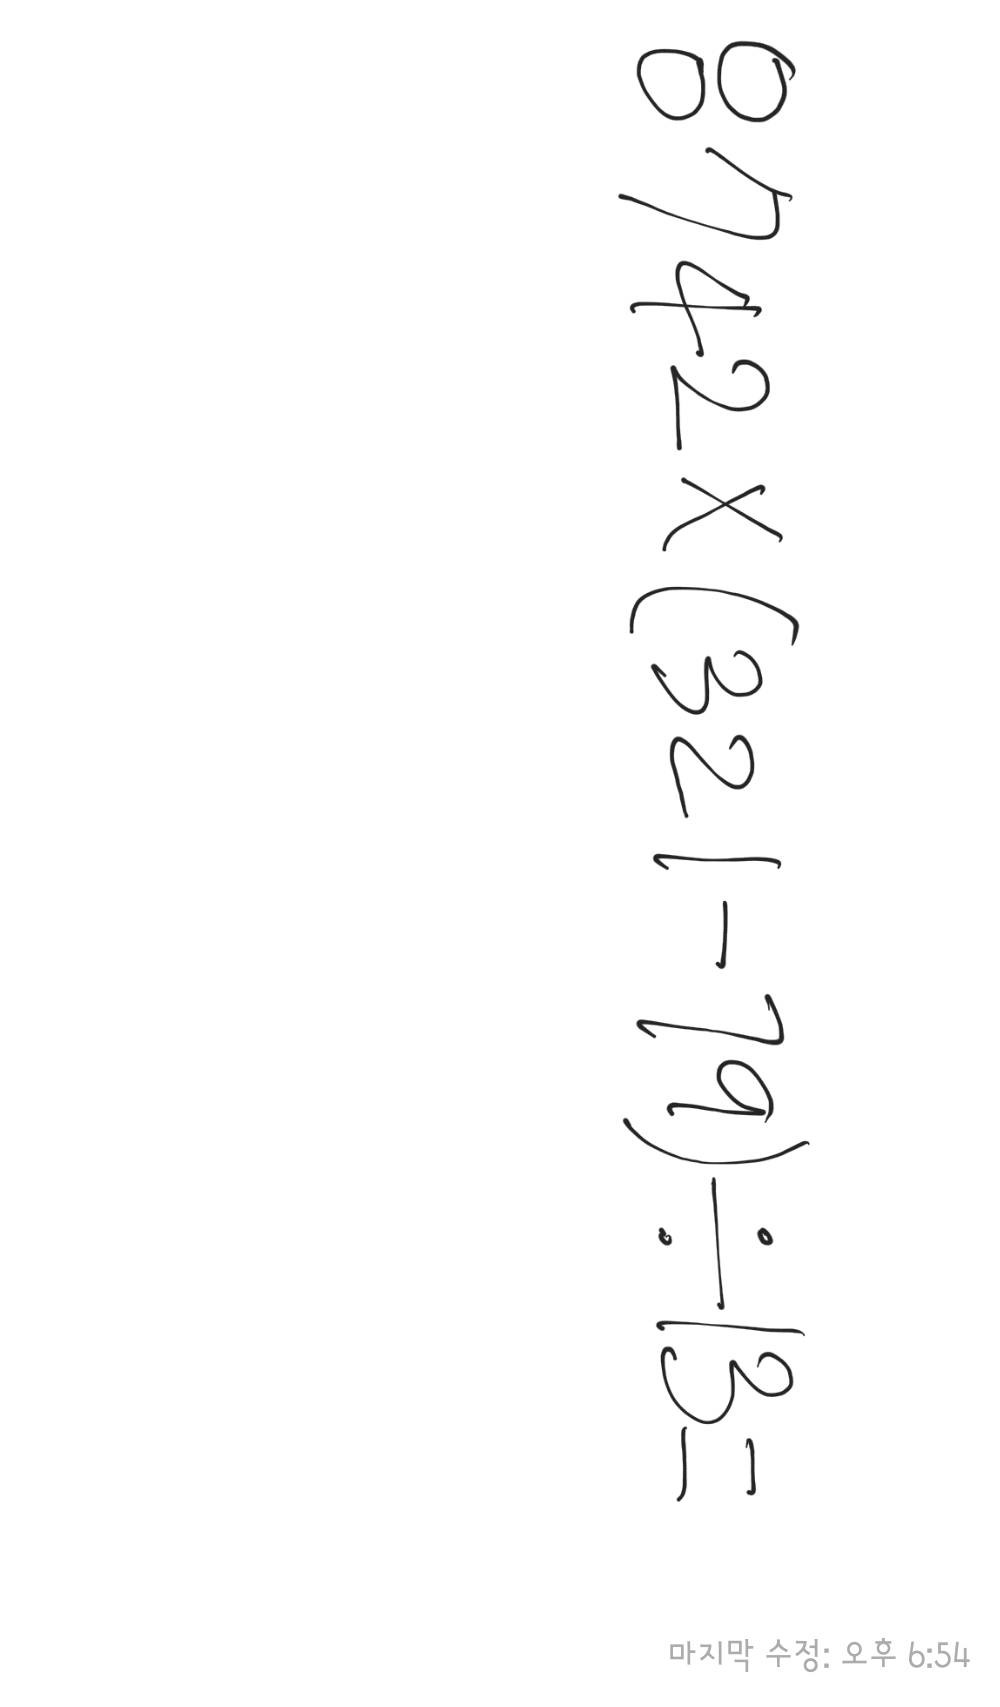 8742×(321-79)÷13=
마지막 수정: 오후 6:54